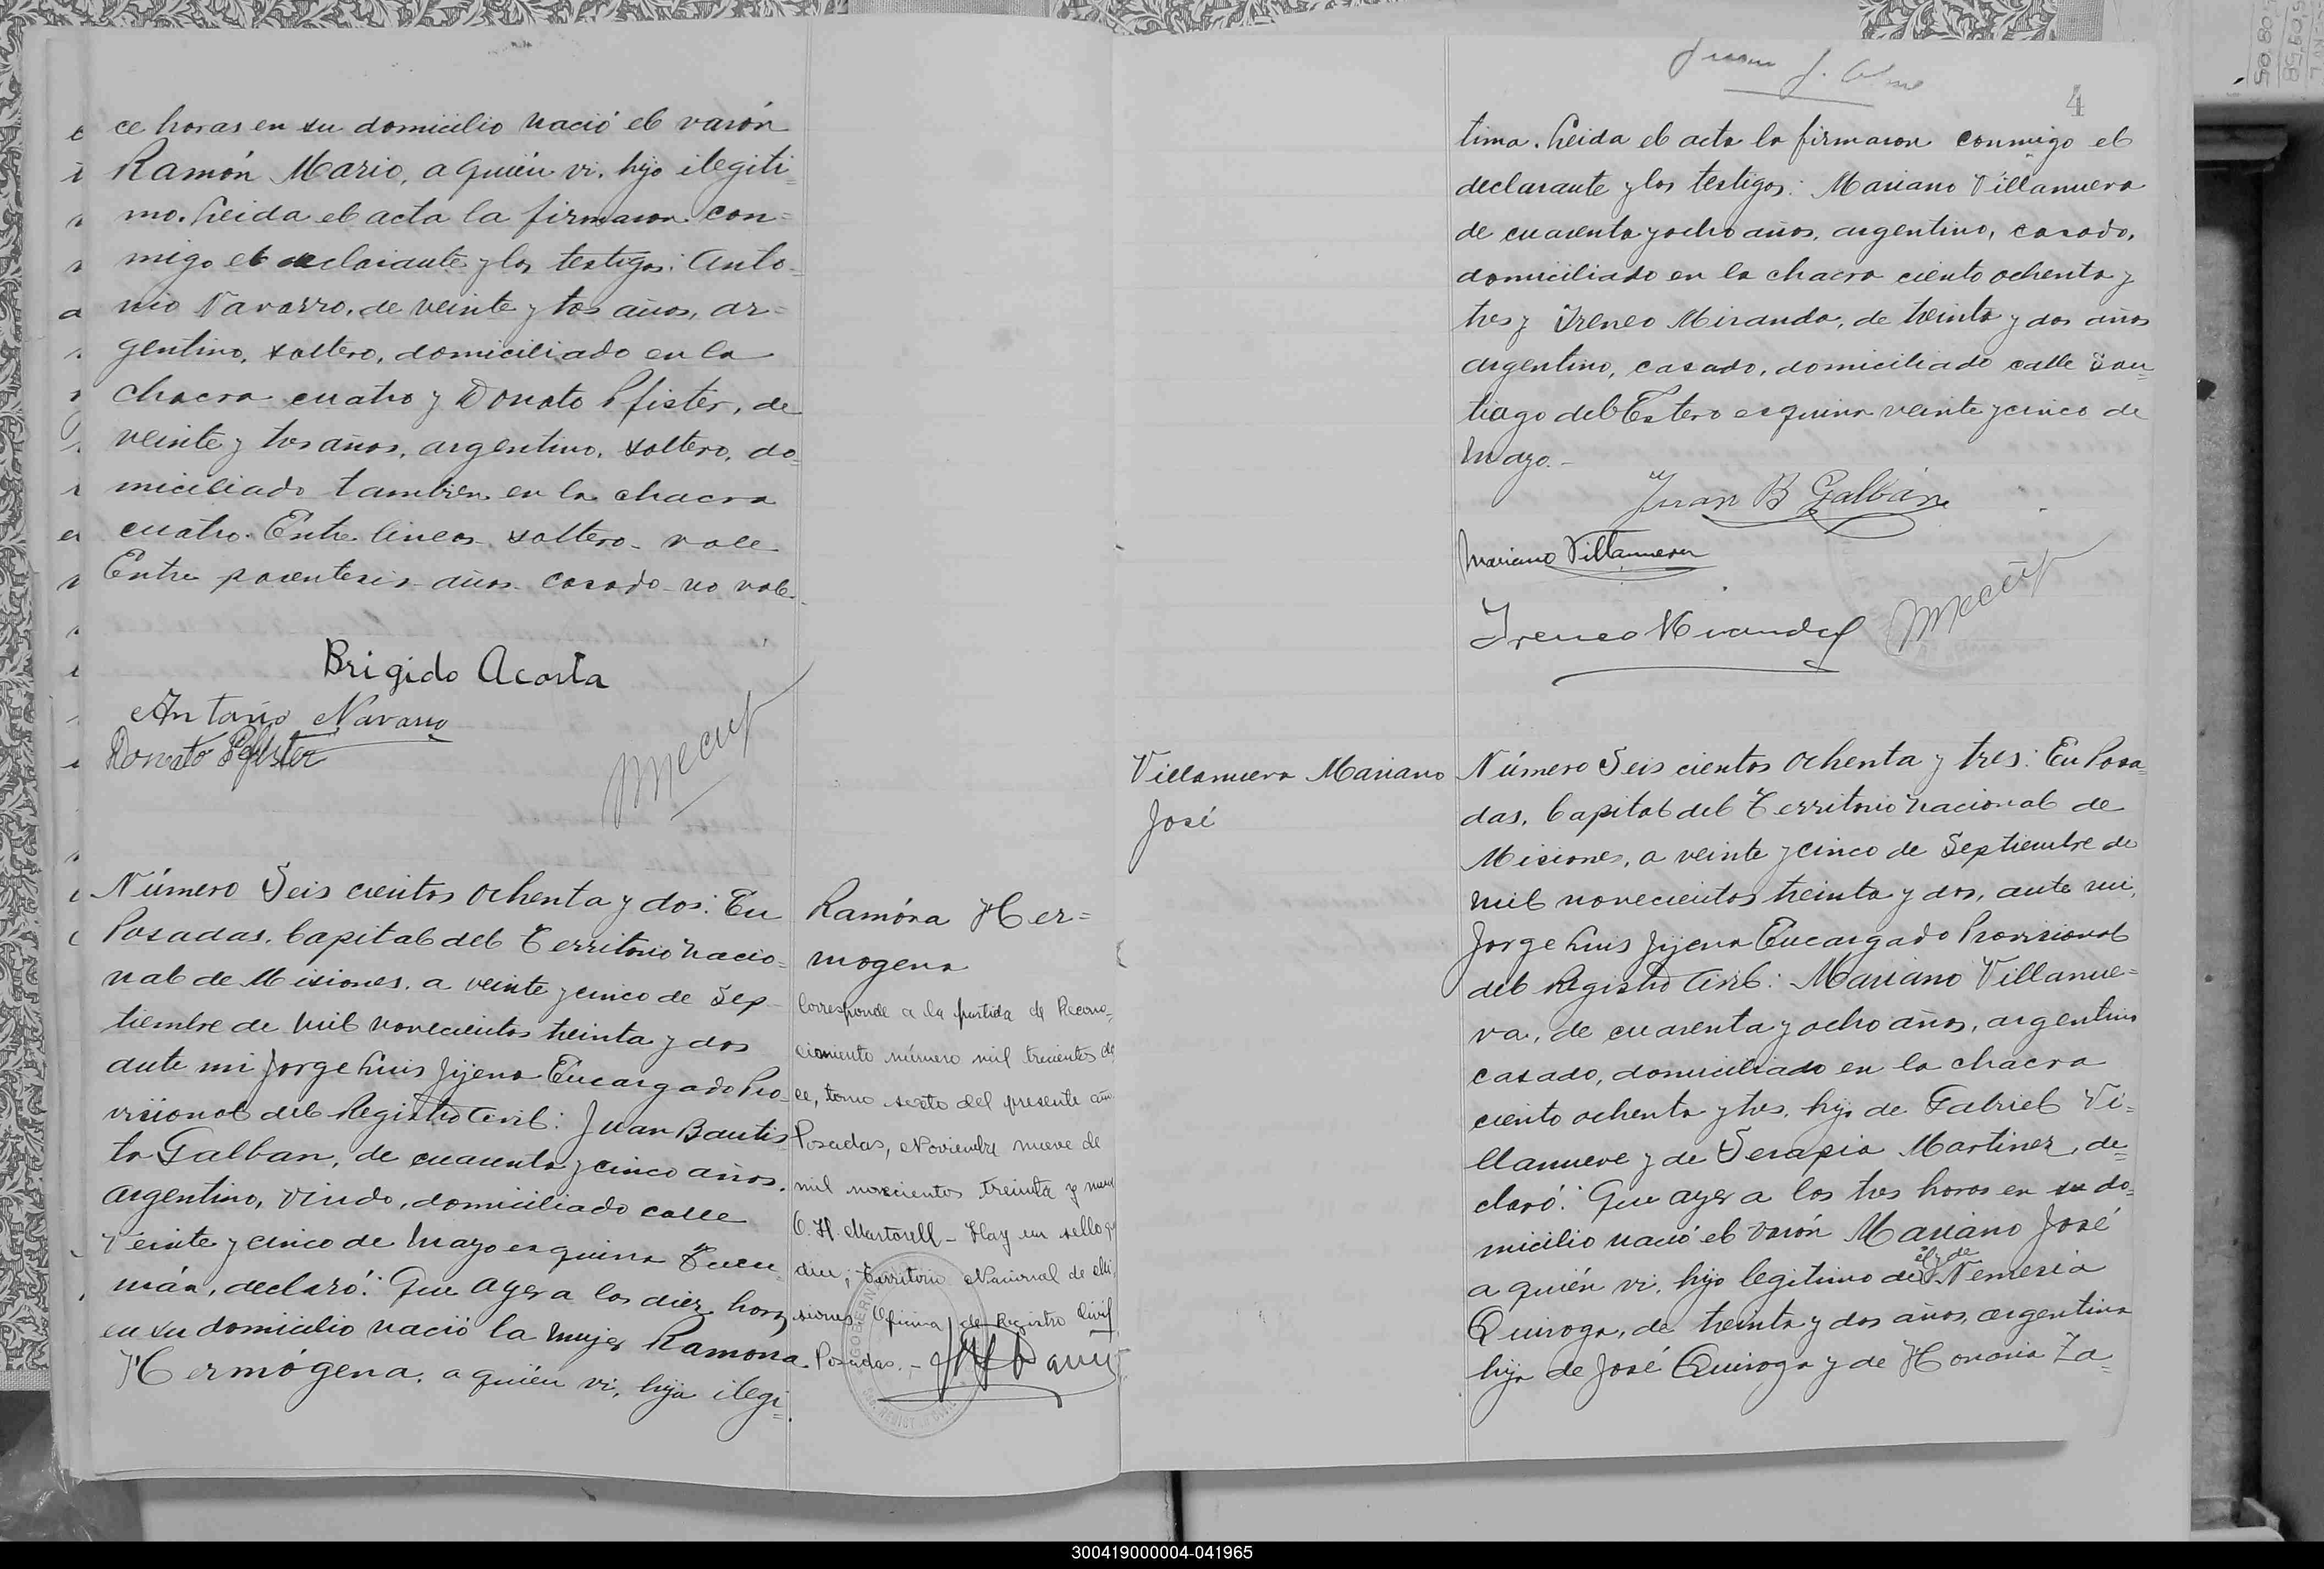 ce horas en su domicilio nació el varón
Ramón Mario, a quién vi, hijo ilegiti-
mo. Leida el acta la firmaron con=
migo el declarante y los testigos: Anto-
nio Navarro, de veinte y tres años, ar=
gentino, soltero, domiciliado en la
chacra cuatro y Donato Pfister, de
veinte y tres años, argentino, soltero, do-
miciliado tambien en la chacra
cuatro. Entre lineas - soltero - vale
Entre parentesis - años - casado - no vale.
Brigido Acosta
Antonio Navarro
Donato Pfister
Número Seis cientos ochenta y dos: En
Posadas, Capital del Territorio nacio=
nal de Misiones, a veinte y cinco de Sep-
tiembre de mil novecientos treinta y dos
ante mi Jorge Luis Jijena Encargado Pro-
visional del Registro Civil: Juan Bautis
ta Galban, de cuarenta y cinco años,
argentino, viudo, domiciliado calle
veinte y cinco de Mayo esquina Tucu-
mán, declaró: Que ayer a las diez horas
en su domicilio nació la mujer Ramona
Hermógena, a quién vi, hija ilegi=
Ramóna Her=
mogena
Corresponde a la partida de Recono-
cimiento número mil trecientos do
ce, tomo sexto del presente año
Posadas, Noviembre nueve de
mil novecientos treinta y nueve
O. H. Martorell - Hay un sello que
dice; Territorio Nacional de Mi-
siones Oficina de Registro Civil
Posadas. -
4
tima. Leida el acta la firmaron conmigo el
declarante y los testigos: Mariano Villanueva
de cuarenta y ocho años, argentino, casado,
domiciliado en la chacra ciento ochenta y
tres y Ireneo Miranda, de treinta y dos años
argentino, casado, domiciliado calle San-
tiago del Estero esquina veinte y cinco de
Mayo. -
Juan B Galbán
Mariano Villanueva
Ireneo Miranda
Villanueva Mariano
José
Número Seis cientos ochenta y tres: En Posa-
das, Capital del Territorio nacional de
Misiones, a veinte y cinco de Septiembre de
mil novecientos treinta y dos, ante mi,
Jorge Luis Jijena Encargado Provisional
del Registro Civil: Mariano Villanue=
va, de cuarenta y ocho años, argentino
casado, domiciliado en la chacra
ciento ochenta y tres, hijo de Gabriel Vi=
llanueve y de Serapia Martinez, de=
claró: Que ayer a las tres horas en su do-
micilio nació el varón Mariano José
a quién vi, hijo legitimo de él y de Nemesia
Quiroga, de treinta y dos años, argentina
hija de José Quiroga y de Honoria Za=
300419000004-041965